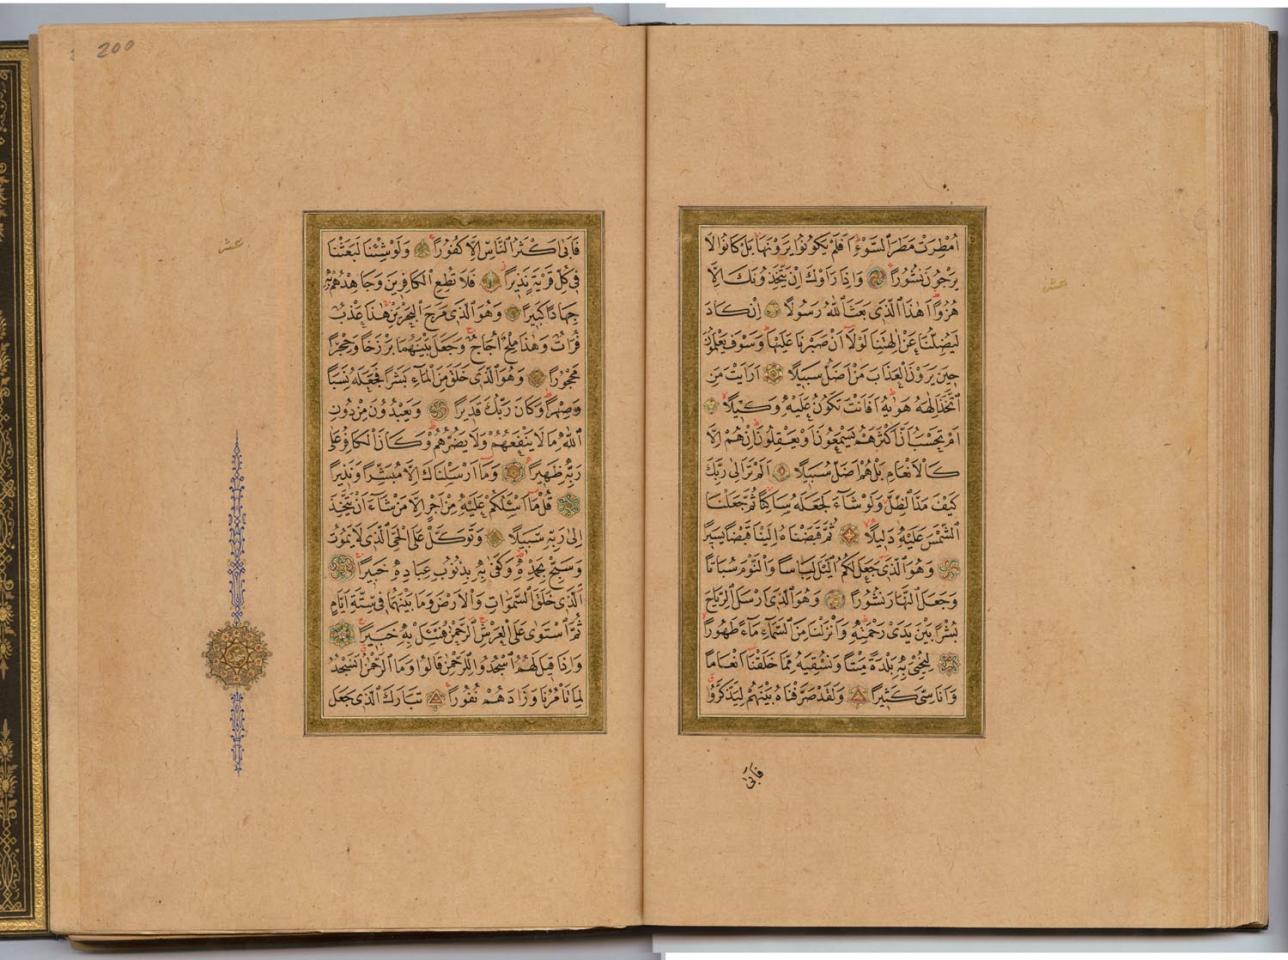 اُمْطِرَتْ مَطَرَ السَّوْءِ اَفَلَمْ يَكُونُوا يَرَوْنَهَا بَلْ كَانُوا لَا
يَرْجُونَ نُشُورًا وَاِذَا رَاَوْكَ اِنْ يَتَّخِذُونَكَ اِلَّا
هُزُوًا اَهٰذَا الَّذِى بَعَثَ اللّٰهُ رَسُولًا اِنْ كَادَ
لَيُضِلُّنَا عَنْ اٰلِهَتِنَا لَوْلَا اَنْ صَبَرْنَا عَلَيْهَا وَسَوْفَ يَعْلَمُونَ
حِينَ يَرَوْنَ الْعَذَابَ مَنْ اَضَلُّ سَبِيلًا اَرَاَيْتَ مَنِ
اتَّخَذَ اِلٰهَهُ هَوٰيهُ اَفَاَنْتَ تَكُونُ عَلَيْهِ وَكِيلًا
اَمْ تَحْسَبُ اَنَّ اَكْثَرَهُمْ يَسْمَعُونَ اَوْ يَعْقِلُونَ اِنْ هُمْ اِلَّا
كَالْاَنْعَامِ بَلْ هُمْ اَضَلُّ سَبِيلًا اَلَمْ تَرَ اِلٰى رَبِّكَ
كَيْفَ مَدَّ الظِّلَّ وَلَوْ شَاءَ لَجَعَلَهُ سَاكِنًا ثُمَّ جَعَلْنَا
الشَّمْسَ عَلَيْهِ دَلِيلًا ثُمَّ قَبَضْنَاهُ اِلَيْنَا قَبْضًا يَسِيرًا
وَهُوَ الَّذِى جَعَلَ لَكُمُ الَّيْلَ لِبَاسًا وَالنَّوْمَ سُبَاتًا
وَجَعَلَ النَّهَارَ نُشُورًا وَهُوَ الَّذِى اَرْسَلَ الرِّيَاحَ
بُشْرًا بَيْنَ يَدَىْ رَحْمَتِهِ وَاَنْزَلْنَا مِنَ السَّمَاءِ مَاءً طَهُورًا
لِنُحْيِىَ بِهِ بَلْدَةً مَيْتًا وَنُسْقِيَهُ مِمَّا خَلَقْنَا اَنْعَامًا
وَاَنَاسِىَّ كَثِيرًا وَلَقَدْ صَرَّفْنَاهُ بَيْنَهُمْ لِيَذَّكَّرُوا
فَاَبٰى
عشر
200
فَاَبٰى اَكْثَرُ النَّاسِ اِلَّا كُفُورًا وَلَوْ شِئْنَا لَبَعَثْنَا
فِى كُلِّ قَرْيَةٍ نَذِيرًا فَلَا تُطِعِ الْكَافِرِينَ وَجَاهِدْهُمْ بِهِ
جِهَادًا كَبِيرًا وَهُوَ الَّذِى مَرَجَ الْبَحْرَيْنِ هٰذَا عَذْبٌ
فُرَاتٌ وَهٰذَا مِلْحٌ اُجَاجٌ وَجَعَلَ بَيْنَهُمَا بَرْزَخًا وَحِجْرًا
مَحْجُورًا وَهُوَ الَّذِى خَلَقَ مِنَ الْمَاءِ بَشَرًا فَجَعَلَهُ نَسَبًا
وَصِهْرًا وَكَانَ رَبُّكَ قَدِيرًا وَيَعْبُدُونَ مِنْ دُونِ
اللّٰهِ مَا لَا يَنْفَعُهُمْ وَلَا يَضُرُّهُمْ وَكَانَ الْكَافِرُ عَلٰى
رَبِّهِ ظَهِيرًا وَمَا اَرْسَلْنَاكَ اِلَّا مُبَشِّرًا وَنَذِيرًا
قُلْ مَا اَسْئَلُكُمْ عَلَيْهِ مِنْ اَجْرٍ اِلَّا مَنْ شَاءَ اَنْ يَتَّخِذَ
اِلٰى رَبِّهِ سَبِيلًا وَتَوَكَّلْ عَلَى الْحَىِّ الَّذِى لَا يَمُوتُ
وَسَبِّحْ بِحَمْدِهِ وَكَفٰى بِهِ بِذُنُوبِ عِبَادِهِ خَبِيرًا
الَّذِى خَلَقَ السَّمٰوَاتِ وَالْاَرْضَ وَمَا بَيْنَهُمَا فِى سِتَّةِ اَيَّامٍ
ثُمَّ اسْتَوٰى عَلَى الْعَرْشِ الرَّحْمٰنُ فَسْئَلْ بِهِ خَبِيرًا
وَاِذَا قِيلَ لَهُمُ اسْجُدُوا لِلرَّحْمٰنِ قَالُوا وَمَا الرَّحْمٰنُ اَنَسْجُدُ
لِمَا تَاْمُرُنَا وَزَادَهُمْ نُفُورًا تَبَارَكَ الَّذِى جَعَلَ
عشر